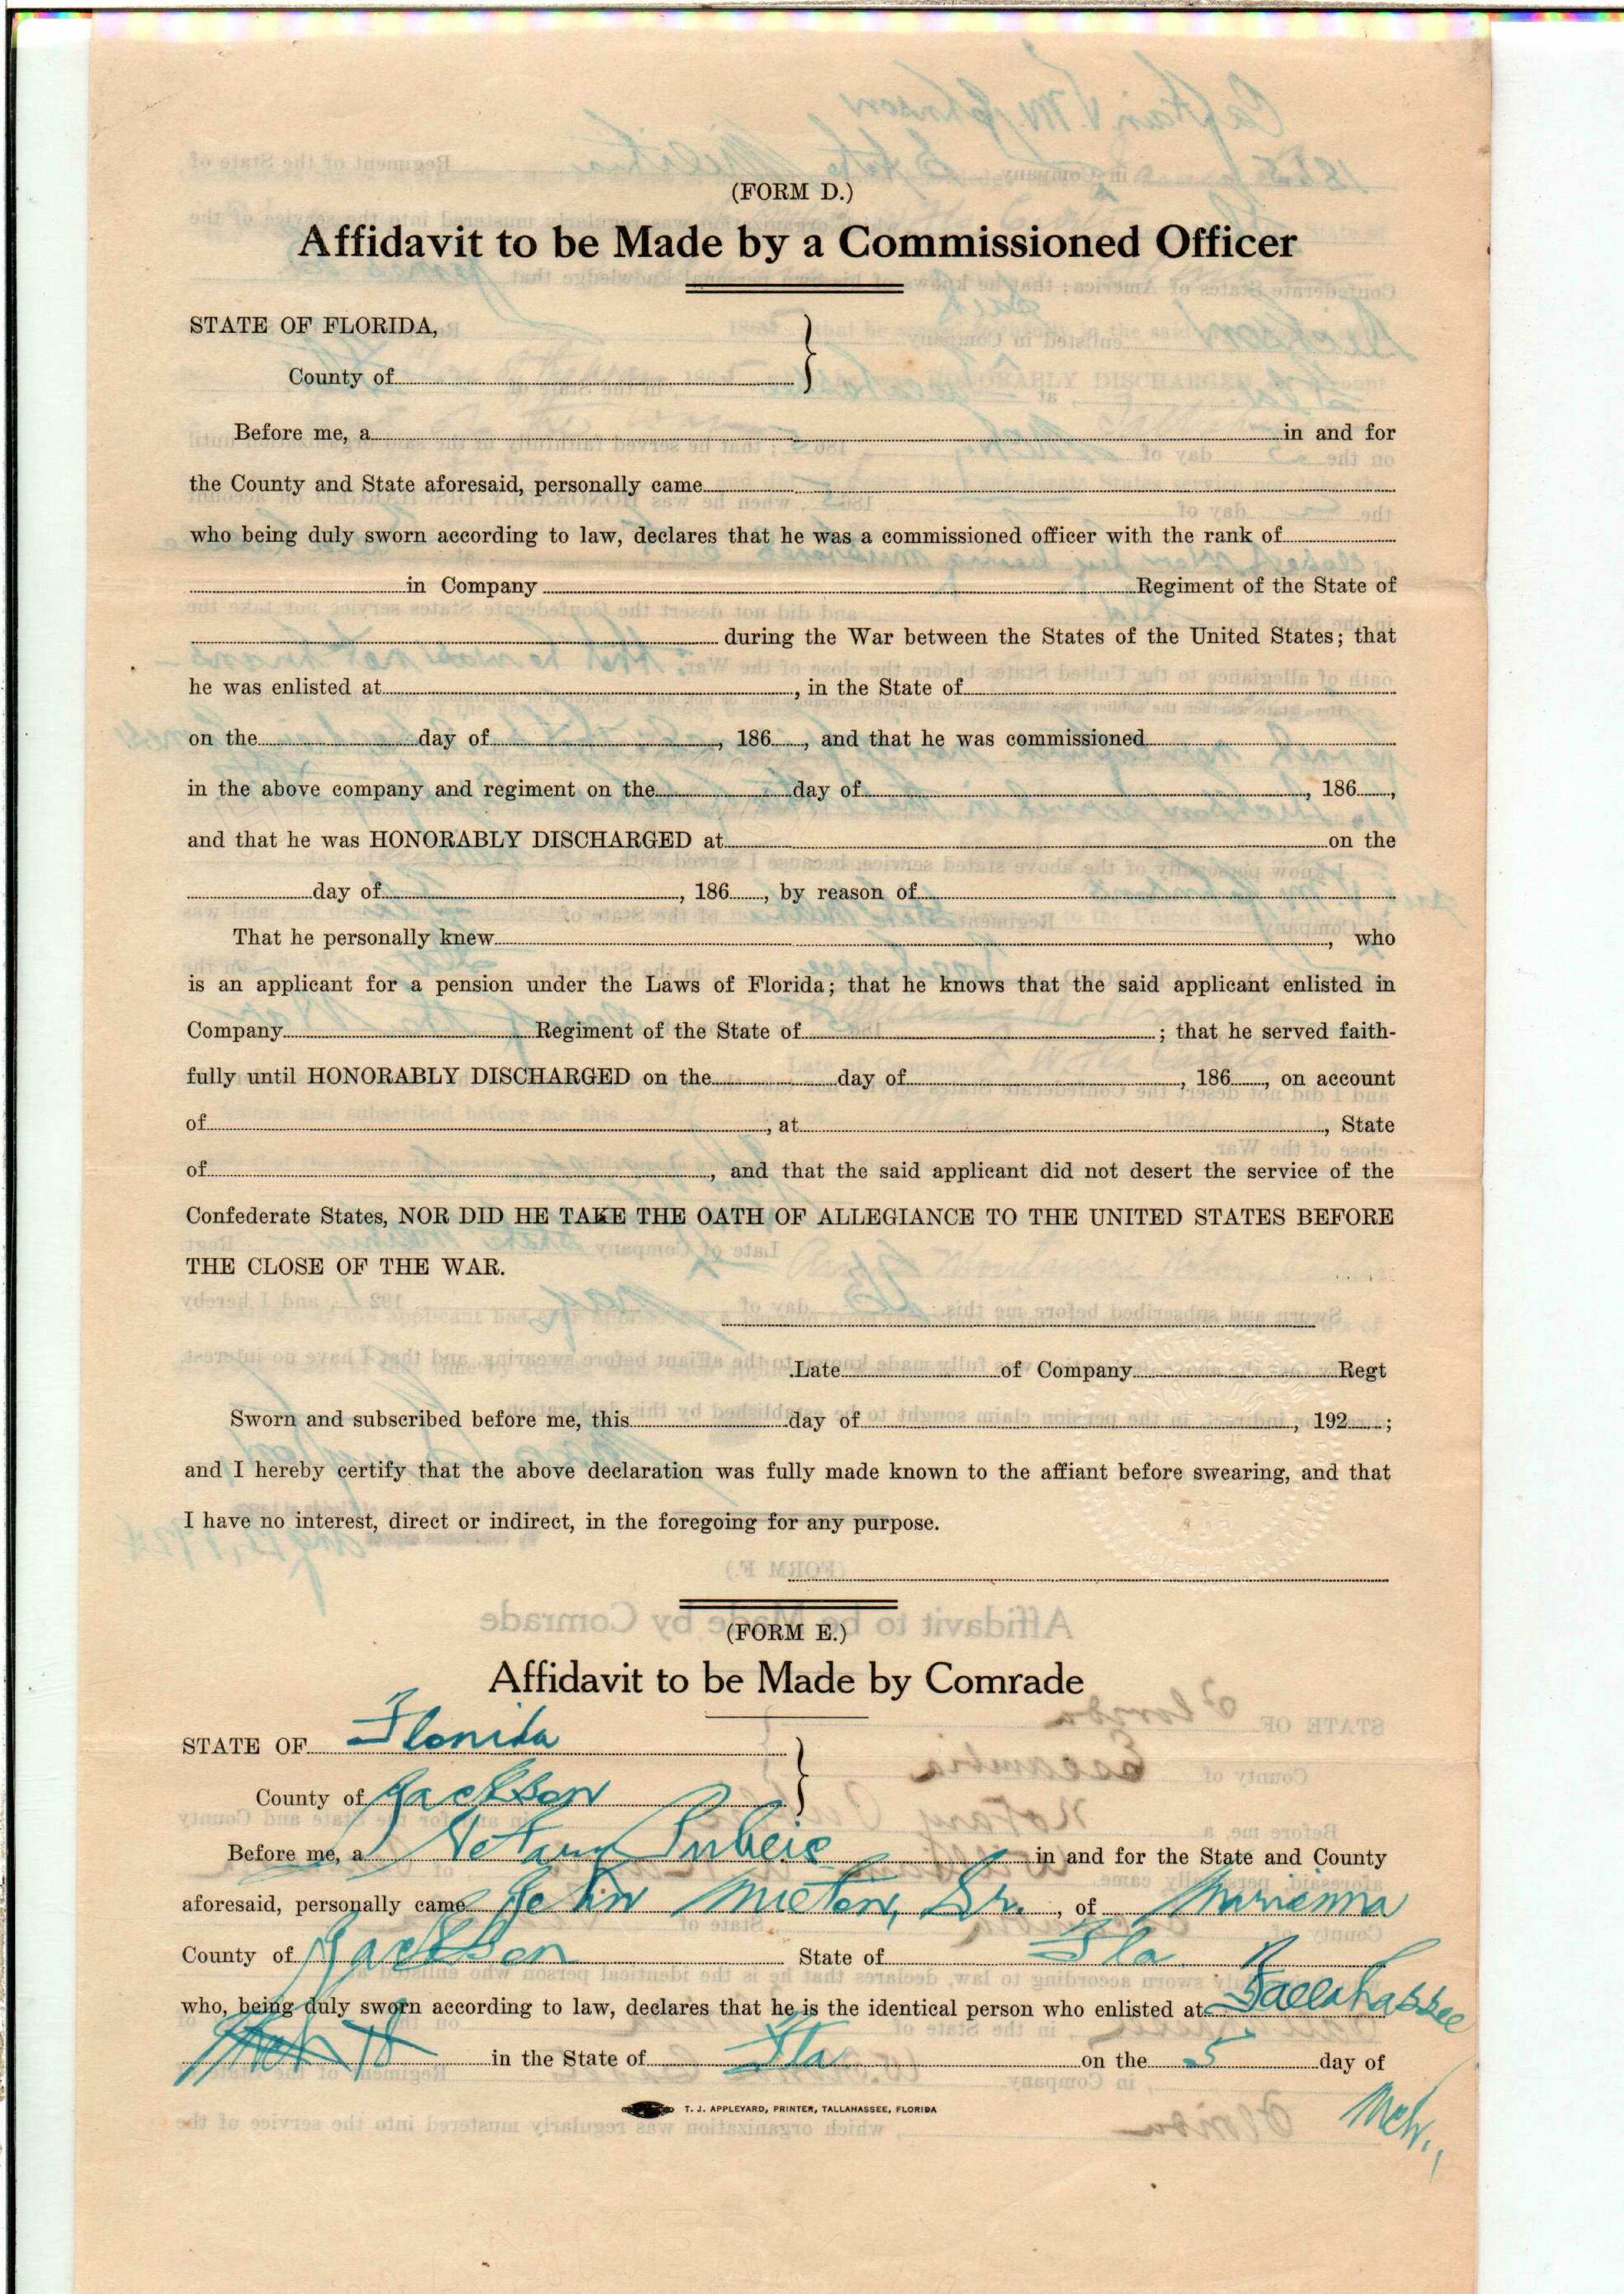 (FORM D.)
Affidavit to be Made by a Commissioned Officer
STATE OF FLORIDA,
County of
Before me, a in and for
the County and State aforesaid, personally came
who being duly sworn according to law, declares that he was a commissioned officer with the rank of
in Company Regiment of the State of
during the War between the States of the United States; that
he was enlisted at , in the State of
on the day of , 186 , and that he was commissioned
in the above company and regiment on the day of , 186 ,
and that he was HONORABLY DISCHARGED at on the
day of , 186 , by reason of
That he personally knew , who
is an applicant for a pension under the Laws of Florida; that he knows that the said applicant enlisted in
Company Regiment of the State of ; that he served faith-
fully until HONORABLY DISCHARGED on the day of , 186 , on account
of , at , State
of , and that the said applicant did not desert the service of the
Confederate States, NOR DID HE TAKE THE OATH OF ALLEGIANCE TO THE UNITED STATES BEFORE
THE CLOSE OF THE WAR.
Late of Company Regt
Sworn and subscribed before me, this day of , 192 ;
and I hereby certify that the above declaration was fully made known to the affiant before swearing, and that
I have no interest, direct or indirect, in the foregoing for any purpose.
(FORM E.)
Affidavit to be Made by Comrade
STATE OF Florida
County of Jackson
Before me, a Notary Public in and for the State and County
aforesaid, personally came John Milton, Sr. , of Marianna
County of Jackson State of Fla.
who, being duly sworn according to law, declares that he is the identical person who enlisted at Tallahassee
in the State of Fla on the 5 day of
Mch.,
T. J. APPLEYARD, PRINTER, TALLAHASSEE, FLORIDA